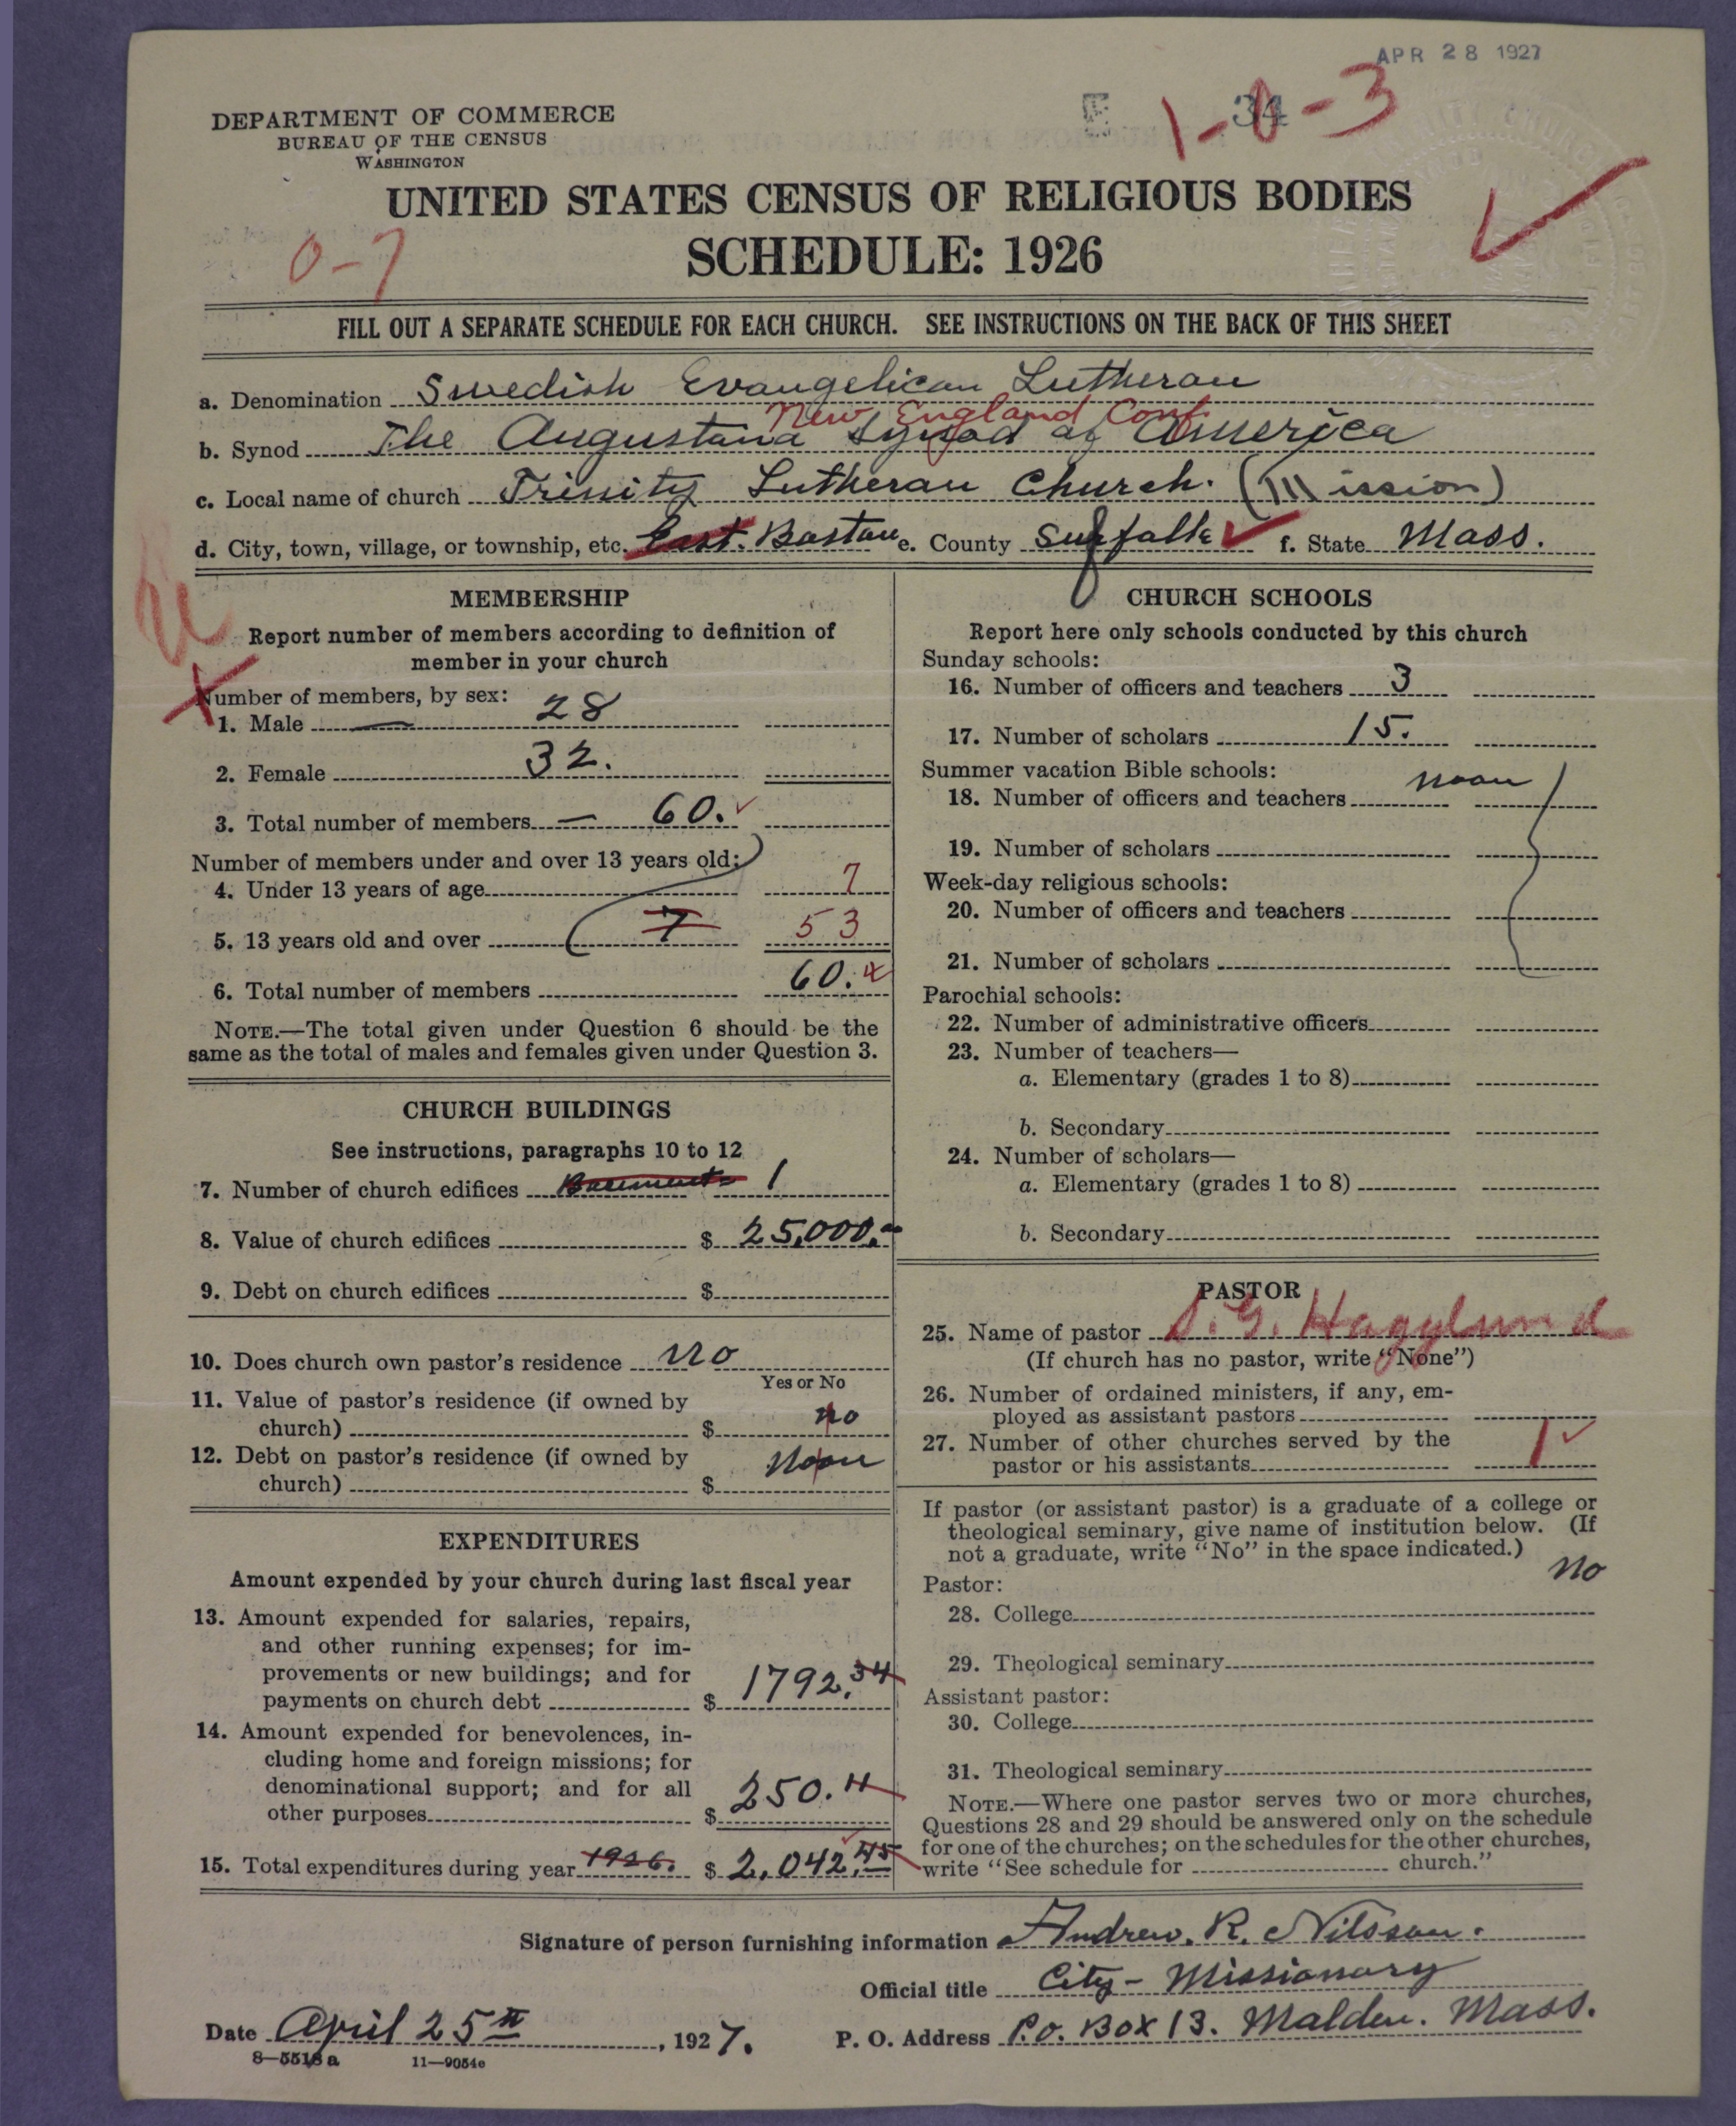 APR 28 1927
DEPARTMENT OF COMMERCE
BUREAU OF THE CENSUS
WASHINGTON
E 34
1-0-3
UNITED STATES CENSUS OF RELIGIOUS BODIES
0-7
SCHEDULE: 1926
FILL OUT A SEPARATE SCHEDULE FOR EACH CHURCH. SEE INSTRUCTIONS ON THE BACK OF THIS SHEET
a. Denomination Swedish Evangelican Lutheran
New England Conf.
b. Synod The Augustana Synod of America
c. Local name of church Trinity Lutheran Church. (Mission)
d. City, town, village, or township, etc. East. Boston e. County Suffolk f. State Mass.
MEMBERSHIP
Report number of members according to definition of
member in your church
Number of members, by sex:
1. Male 28
2. Female 32.
3. Total number of members 60.
Number of members under and over 13 years old:
4. Under 13 years of age 7
5. 13 years old and over 7 53
6. Total number of members 60.
NOTE.—The total given under Question 6 should be the
same as the total of males and females given under Question 3.
CHURCH BUILDINGS
See instructions, paragraphs 10 to 12
7. Number of church edifices Basement 1
8. Value of church edifices $ 25,000.
9. Debt on church edifices $
10. Does church own pastor's residence no
Yes or No
11. Value of pastor's residence (if owned by
church) $ no
12. Debt on pastor's residence (if owned by
church) $ noon
EXPENDITURES
Amount expended by your church during last fiscal year
13. Amount expended for salaries, repairs,
and other running expenses; for im-
provements or new buildings; and for
payments on church debt $ 1792.34
14. Amount expended for benevolences, in-
cluding home and foreign missions; for
denominational support; and for all
other purposes $ 250.11
15. Total expenditures during year 1926. $ 2,042.45
CHURCH SCHOOLS
Report here only schools conducted by this church
Sunday schools:
16. Number of officers and teachers 3
17. Number of scholars 15.
Summer vacation Bible schools:
18. Number of officers and teachers noon
19. Number of scholars
Week-day religious schools:
20. Number of officers and teachers
21. Number of scholars
Parochial schools:
22. Number of administrative officers
23. Number of teachers—
a. Elementary (grades 1 to 8)
b. Secondary
24. Number of scholars—
a. Elementary (grades 1 to 8)
b. Secondary
PASTOR
25. Name of pastor S. G. Hagglund
(If church has no pastor, write "None")
26. Number of ordained ministers, if any, em-
ployed as assistant pastors
27. Number of other churches served by the
pastor or his assistants 1
If pastor (or assistant pastor) is a graduate of a college or
theological seminary, give name of institution below. (If
not a graduate, write "No" in the space indicated.)
no
Pastor:
28. College
29. Theological seminary
Assistant pastor:
30. College
31. Theological seminary
NOTE.—Where one pastor serves two or more churches,
Questions 28 and 29 should be answered only on the schedule
for one of the churches; on the schedules for the other churches,
write "See schedule for church."
Signature of person furnishing information Andrew. R. Nilsson.
Official title City - Missionary
Date April 25th, 1927. P. O. Address P.O. Box 13. Malden. Mass.
8—5518 a 11—9054c